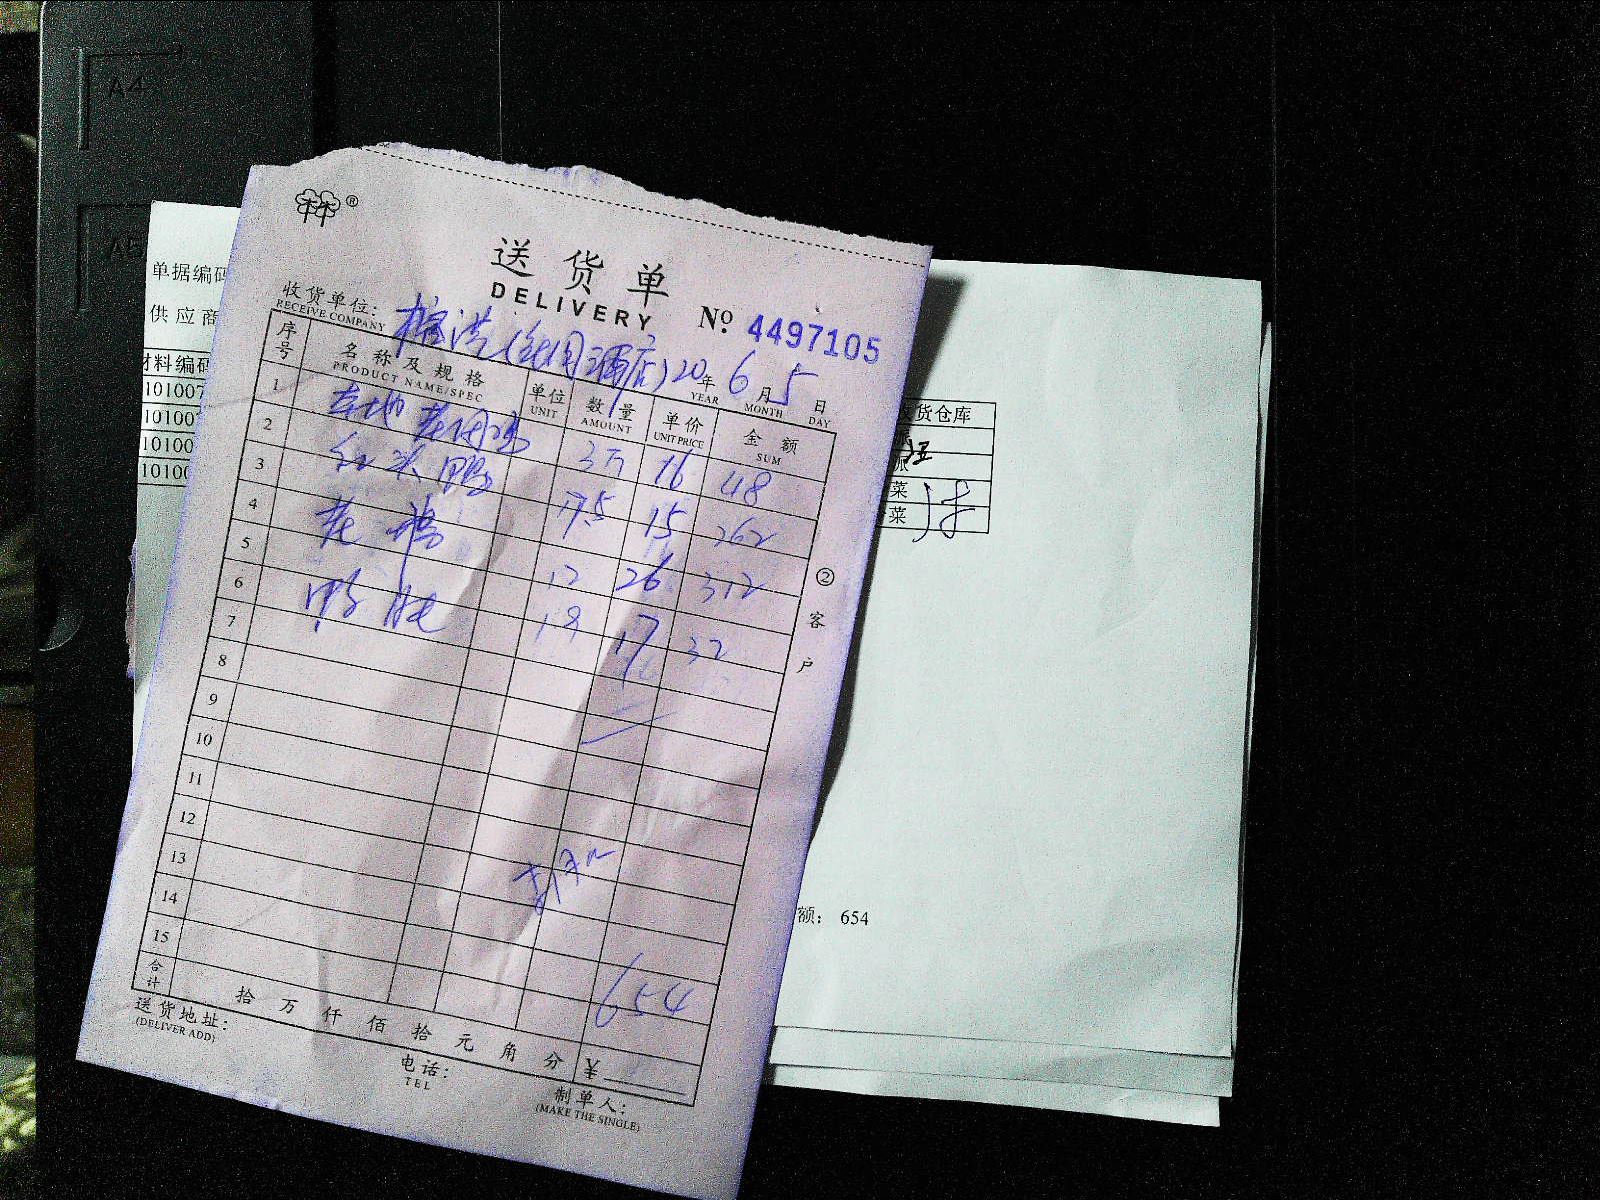 A4
A5
单据编码
供应商
材料编码
10100
10100
10100
10100
货仓库
菜
菜
额： 654
林®
送货单
DELIVERY
№ 4497105
收货单位：
RECEIVE COMPANY
20年 6月 5日
YEAR MONTH DAY
序号 名称及规格 单位 数量 单价 金额
PRODUCT NAME/SPEC UNIT AMOUNT UNIT PRICE SUM
1 本地老母鸡 3只 16 48
2 红头鸭 17.5 15 262
3 老鸽 12 26 312
4 鸭肫 1.9 17 32
5
6
7
8
9
10
11
12
13
14
15
654
合计 拾 万 仟 佰 拾 元 角 分 ¥
送货地址：
(DELIVER ADD)
电话：
TEL
制单人：
(MAKE THE SINGLE)
②客户